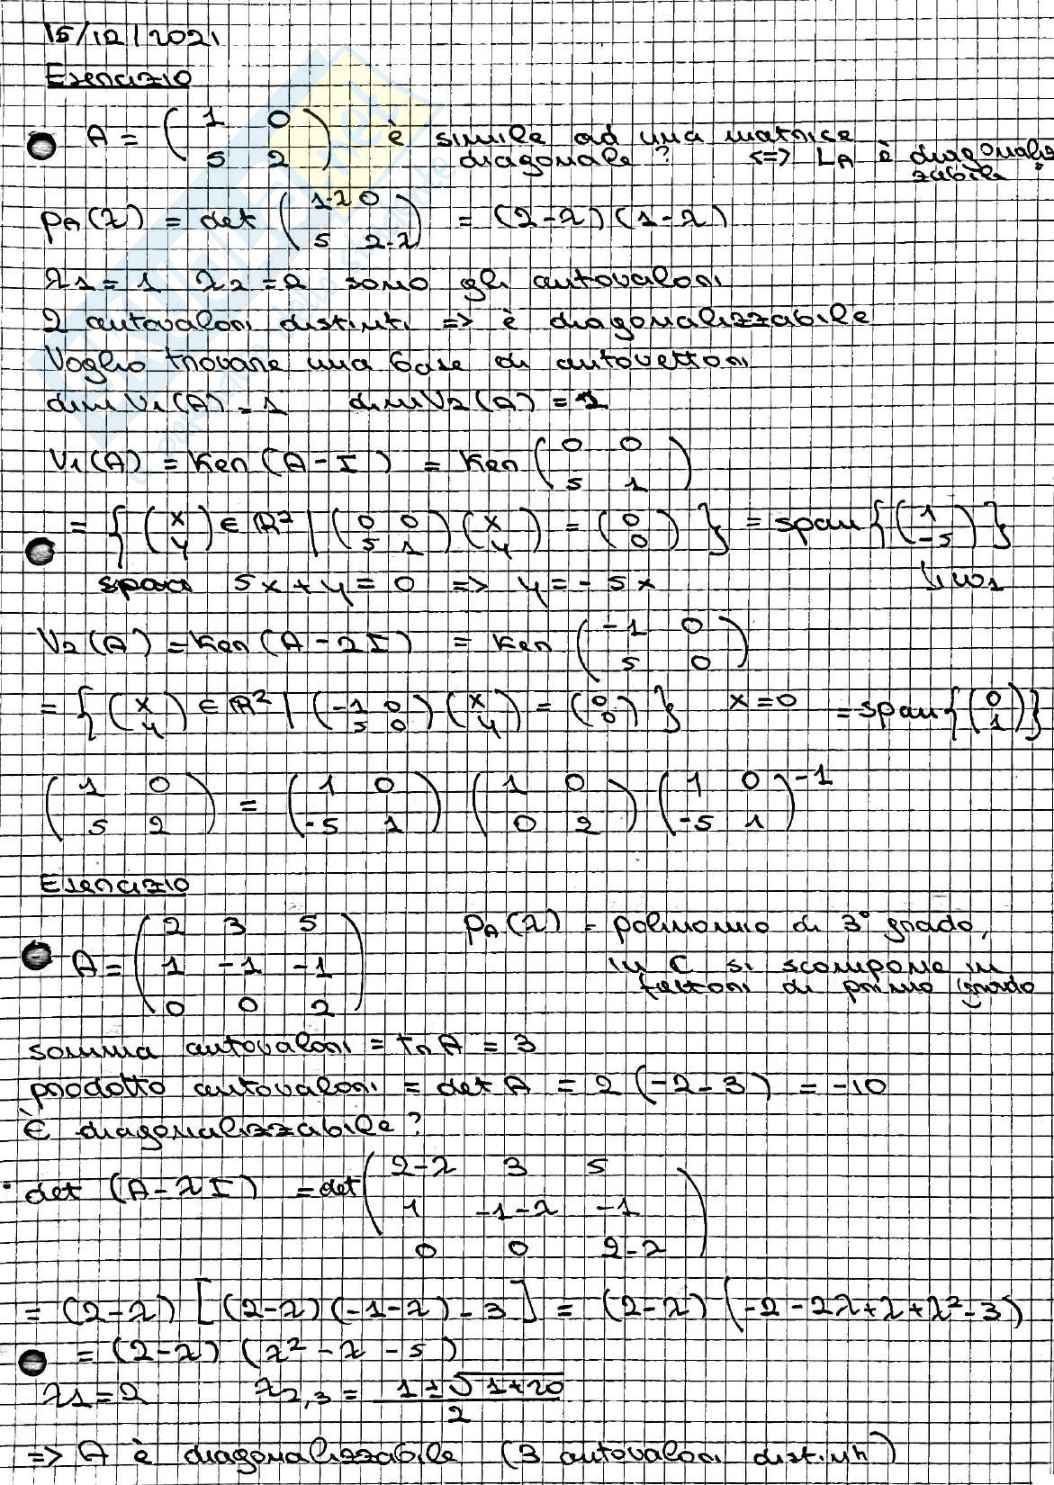 15/12/2021
Esercizio
A = ( 1 0 ; 5 2 ) è simile ad una matrice diagonale? <=> L_A è diagonalizzabile
p_A(λ) = det ( 1-λ 0 ; 5 2-λ ) = (2-λ)(1-λ)
λ1 = 1 λ2 = 2 sono gli autovalori
2 autovalori distinti => è diagonalizzabile
Voglio trovare una base di autovettori
dim V1(A) = 1 dim V2(A) = 1
V1(A) = Ker(A-I) = Ker ( 0 0 ; 5 1 )
= { ( x ; y ) ∈ R² | ( 0 0 ; 5 1 ) ( x ; y ) = ( 0 ; 0 ) } = span { ( 1 ; -5 ) }
5x+y = 0 => y = -5x
V2(A) = Ker(A-2I) = Ker ( -1 0 ; 5 0 )
= { ( x ; y ) ∈ R² | ( -1 0 ; 5 0 ) ( x ; y ) = ( 0 ; 0 ) } x=0 = span { ( 0 ; 1 ) }
( 1 0 ; 5 2 ) = ( 1 0 ; -5 1 ) ( 1 0 ; 0 2 ) ( 1 0 ; -5 1 )^-1
Esercizio
A = ( 2 3 5 ; 1 -1 -1 ; 0 0 2 ) p_A(λ) = polinomio di 3° grado,
in C si scompone in
fattori di primo grado
somma autovalori = tr A = 3
prodotto autovalori = det A = 2(-2-3) = -10
È diagonalizzabile?
det (A-λI) = det ( 2-λ 3 5 ; 1 -1-λ -1 ; 0 0 2-λ )
= (2-λ) [(2-λ)(-1-λ)-3] = (2-λ) (-2-2λ+λ+λ²-3)
= (2-λ) (λ²-λ-5)
λ1 = 2 λ2,3 = (1±√1+20)/2
=> A è diagonalizzabile (3 autovalori distinti)